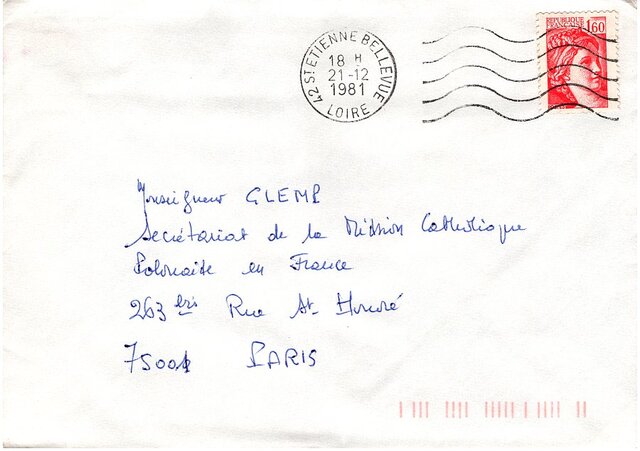 42 ST ETIENNE BELLEVUE
18 H
21-12
1981
LOIRE
REPUBLIQUE
FRANÇAISE
1,60
Monseigneur GLEMP
Secrétariat de la Mission Catholique
Polonaise en France
263 bis Rue St Honoré
75001 PARIS